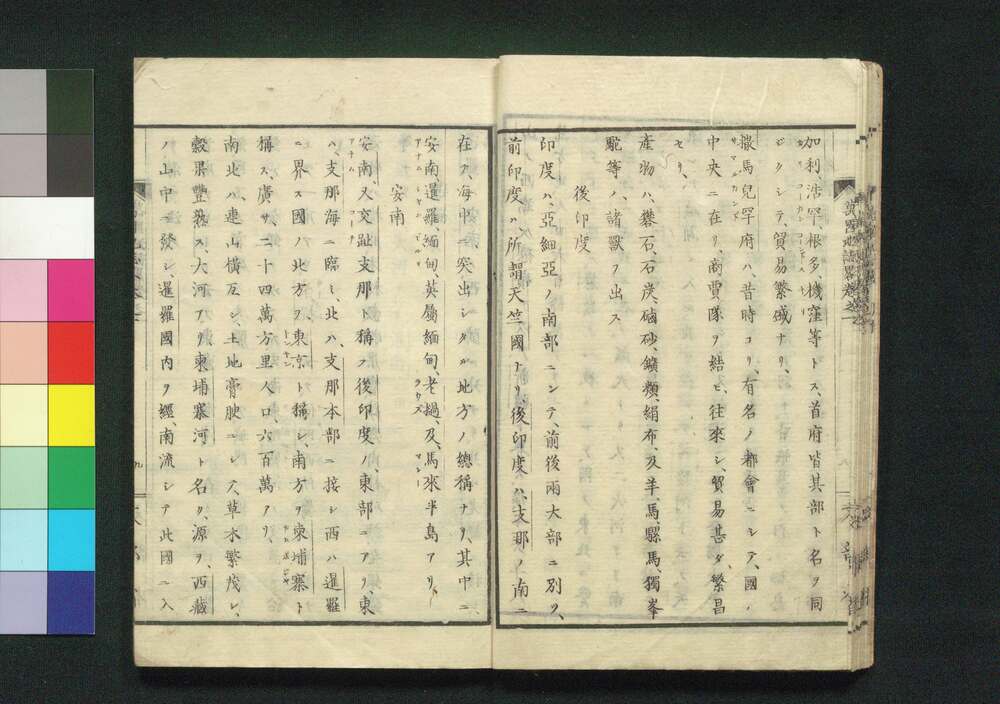 加利、浩罕、根多機窪等トス、首府皆其部ト名ヲ同
ジクシテ、貿易繁盛ナリ、
撒馬兒罕府ハ、昔時ヨリ、有名ノ都會ニシテ、國ノ
中央ニ在リ、商賈隊ヲ結ビ、往來シ、貿易甚ダ繁昌
セリ、
産物ハ、礬石、石炭、磠砂、鑛類、絹布、及羊、馬、騾馬、獨峯
駝等ノ、諸獸ヲ出ス
後印度
印度ハ、亞細亞ノ南部ニシテ、前後兩大部ニ別ツ、
前印度ハ、所謂天竺國ナリ、後印度ハ、支那ノ南ニ
在テ、海中ニ突出シタル地方ノ總稱ナリ、其中ニ
安南、暹羅、緬甸、英屬緬甸、老撾、及、馬來半島アリ、
安南
安南又交趾支那ト稱フ後印度ノ東部ニアリ、東
ハ、支那海ニ臨ミ、北ハ、支那本部ニ接シ西ハ暹羅
ニ界ス國ノ北方ヲ東京ト稱シ、南方ヲ柬埔寨ト
稱ス、廣サ、二十四萬方里人口、六百萬アリ、
南北ハ、連山橫亙シ、土地膏腴ニシテ、草木繁茂シ、
穀果豐熟ス、大河アリ柬埔寨河ト名ク、源ヲ、西藏
ノ山中ニ發シ、暹羅國内ヲ經、南流シテ此國ニ入